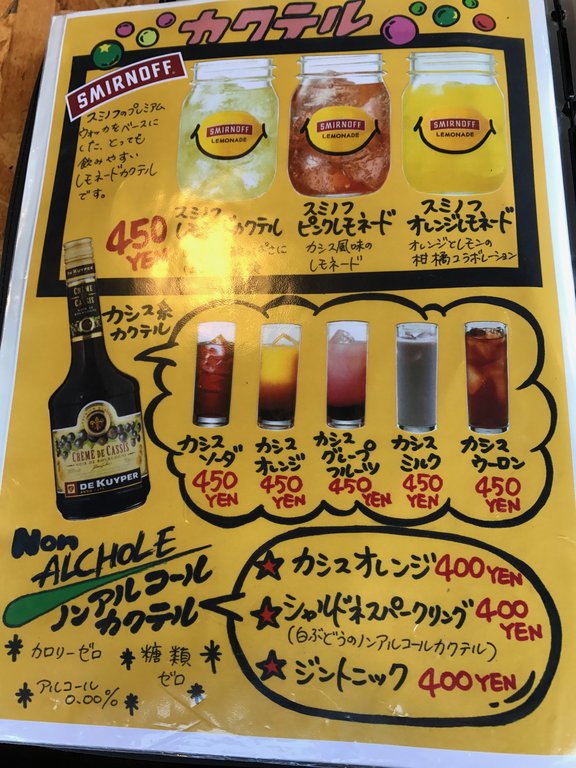 カクテル
SMIRNOFF
スミノフのプレミアム
ウォッカをベースに
した、とっても
飲みやすい
レモネードカクテル
です。
SMIRNOFF
LEMONADE
SMIRNOFF
LEMONADE
SMIRNOFF
LEMONADE
450
YEN
スミノフ
カクテル
スミノフ
ピンクレモネード
カシス風味の
レモネード
スミノフ
オレンジレモネード
オレンジとレモンの
柑橘コラボレーション
DE KUYPER
CRÈME DE CASSIS
DE KUYPER
カシス系
カクテル
カシス
ソーダ
450
YEN
カシス
オレンジ
450
YEN
カシス
グレープ
フルーツ
450
YEN
カシス
ミルク
450
YEN
カシス
ウーロン
450
YEN
Non
ALCHOLE
ノンアルコール
カクテル
カロリーゼロ
糖類
ゼロ
アルコール
0.00%
カシスオレンジ 400 YEN
シャルドネスパークリング 400
YEN
(白ぶどうのノンアルコールカクテル)
ジントニック 400 YEN